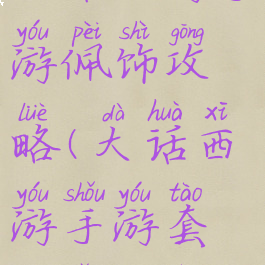 yóu pèi shì gōng
游佩饰攻
lüè dà huà xī
略(大话西
yóu shǒu yóu tào
游手游套